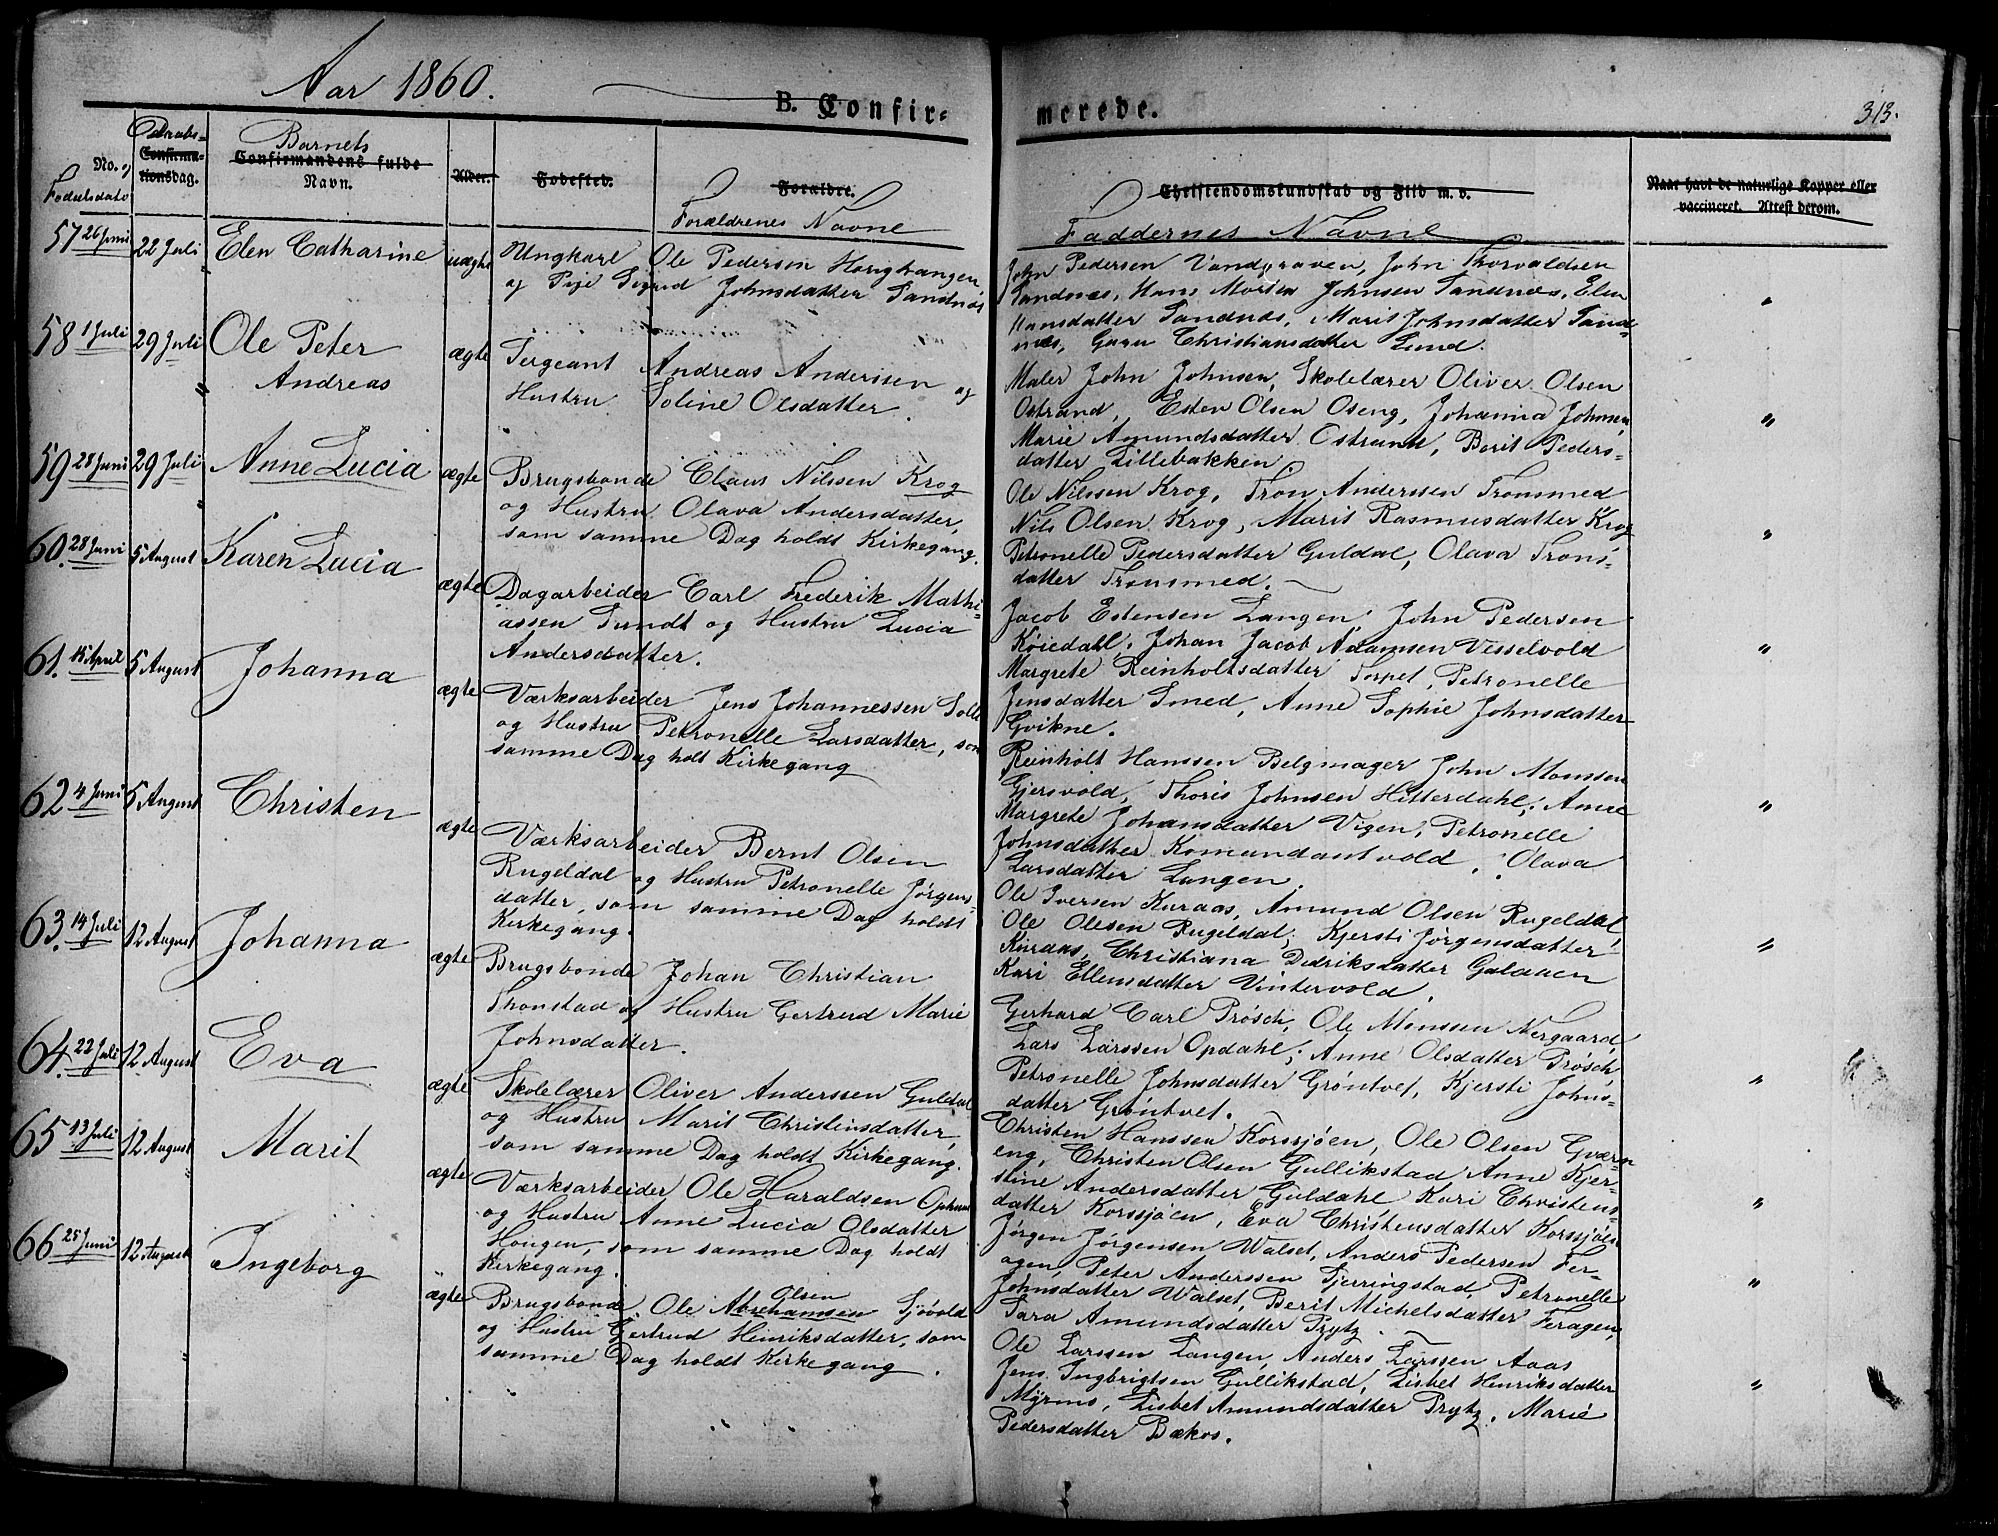 Aar 1860.
B. Confir-
merede.
313.
No. og
Fødselsdato
Daabs-
Confirma-
tionsdag.
Barnets
Confirmandens fulde
Navn.
Alder.
Fødested.
Forældre.
Forældrenes Navne
Christendomskundskab og Flid m. v.
Faddernes Navne
Naar havt de naturlige Kopper eller
vaccineret. Attest derom.
57 26 Juni 22 Juli Elen Catharine uægte
Ungkarl Ole Pedersen
og Pige Sigrid Johnsdatter Sandnæs
John Pedersen Vandgraven, John Thorvaldsen
Sandnæs, Hans Morten Johnsen Sandnæs, Elen
Hansdatter Sandnæs, Marit Johnsdatter Sand-
næs, Guru Christiansdatter Lund.
58 1 Juli 29 Juli Ole Peter
Andreas
ægte
Sergeant Andreas Anderssen og
Hustru Soline Olsdatter.
Maler John Johnsen, Skolelærer Oliver Olsen
Østrand, Esten Olsen Oseng, Johanna Johnsen,
Marie Amundsdatter Ostrand, Berit Peders-
datter Lillebakken
59 28 Juni 29 Juli Anne Lucia ægte
Brugsbonde Claus Nilssen Krog
og Hustru Olava Andersdatter,
som samme Dag holdt Kirkegang.
Ole Nilssen Krog, Tron Anderssen Tronsmed
Nils Olsen Krog, Marit Rasmusdatter Krog
Petronelle Pedersdatter Guldal, Olava Trons-
datter Tronsmed.
60. 28 Juni 5 August Karen Lucia ægte
Dagarbeider Carl Frederik Mathi-
assen Tundt og Hustru Lucia
Andersdatter.
Jacob Estensen Langen, John Pedersen
Køiedahl, Johan Jacob Adamsen Vesselvold
Margrete Reinholtsdatter Torpet, Petronelle
Jensdatter Smed, Anne Sophie Johnsdatter
Gvikne.
61. 15 April 5 August Johanna ægte
Værksarbeider Jens Johannessen
og Hustru Petronelle Larsdatter, som
samme Dag holdt Kirkegang
Reinholt Hanssen Belgmager John Monssen
Gjersvold, Thoris Johnsen Hitterdahl, Anne
Margrete Johansdatter Vigen, Petronelle
Johnsdatter Komandantvold, Olava
Larsdatter Langen.
62 4 Juni 5 August Christen ægte
Værksarbeider Bernt Olsen
Rugeldal og Hustru Petronelle Jørgens-
datter, som samme Dag holdt
Kirkegang.
Ole Iversen Kuraas, Amund Olsen Rugeldal,
Ole Olesen Rugeldal, Kjersti Jørgensdatter
Kuraas, Christiana Dedriksdatter Galaaen
Kari Ellensdatter Vintervold.
63. 14 Juli 12 August Johanna ægte
Brugsbonde Johan Christian
Thonstad og Hustru Gertrud Marie
Johnsdatter.
Gerhard Carl Prøsch, Ole Monssen Nergaard,
Lars Larssen Opdahl, Anne Olsdatter Prøsch
Petronelle Johnsdatter Grøntvet, Kjersti Johns-
datter Grøntvet.
64. 22 Juli 12. August Eva ægte
Skolelærer Oliver Anderssen Guldal
og Hustru Marit Christensdatter,
som samme Dag holdt Kirkegang.
Christen Hanssen Korssjøen, Ole Olsen Gværn-
eng, Christen Olsen Gullikstad Anne Kjer-
stine Andersdatter Guldahl Kari Christens-
datter Korssjøen, Eva Christensdatter Korssjøen
65 13 Juli 12 August Marit ægte
Værksarbeider Ole Haraldsen
og Hustru Anne Lucia Olsdatter
Hougen, som samme Dag holdt
Kirkegang.
Jørgen Jørgensen Walset, Anders Pedersen Fer-
agen, Peter Anderssen Tjerringstad, Petronelle
Johnsdatter Walset, Berit Michelsdatter Feragen,
Sara Amundsdatter Prytz.
66 25 Juni 12 August Ingeborg ægte
Brugsbonde Ole Abrahamsen Olsen Sjøvold
og Hustru Gertrud Henriksdatter, som
samme Dag holdt Kirkegang.
Ole Larssen Langen, Anders Larssen Aaas
Jens Ingbrigtsen Gullikstad, Lisbet Henriksdatter
Myrmo, Lisbet Amundsdatter Prytz, Marie
Pedersdatter Bækos.